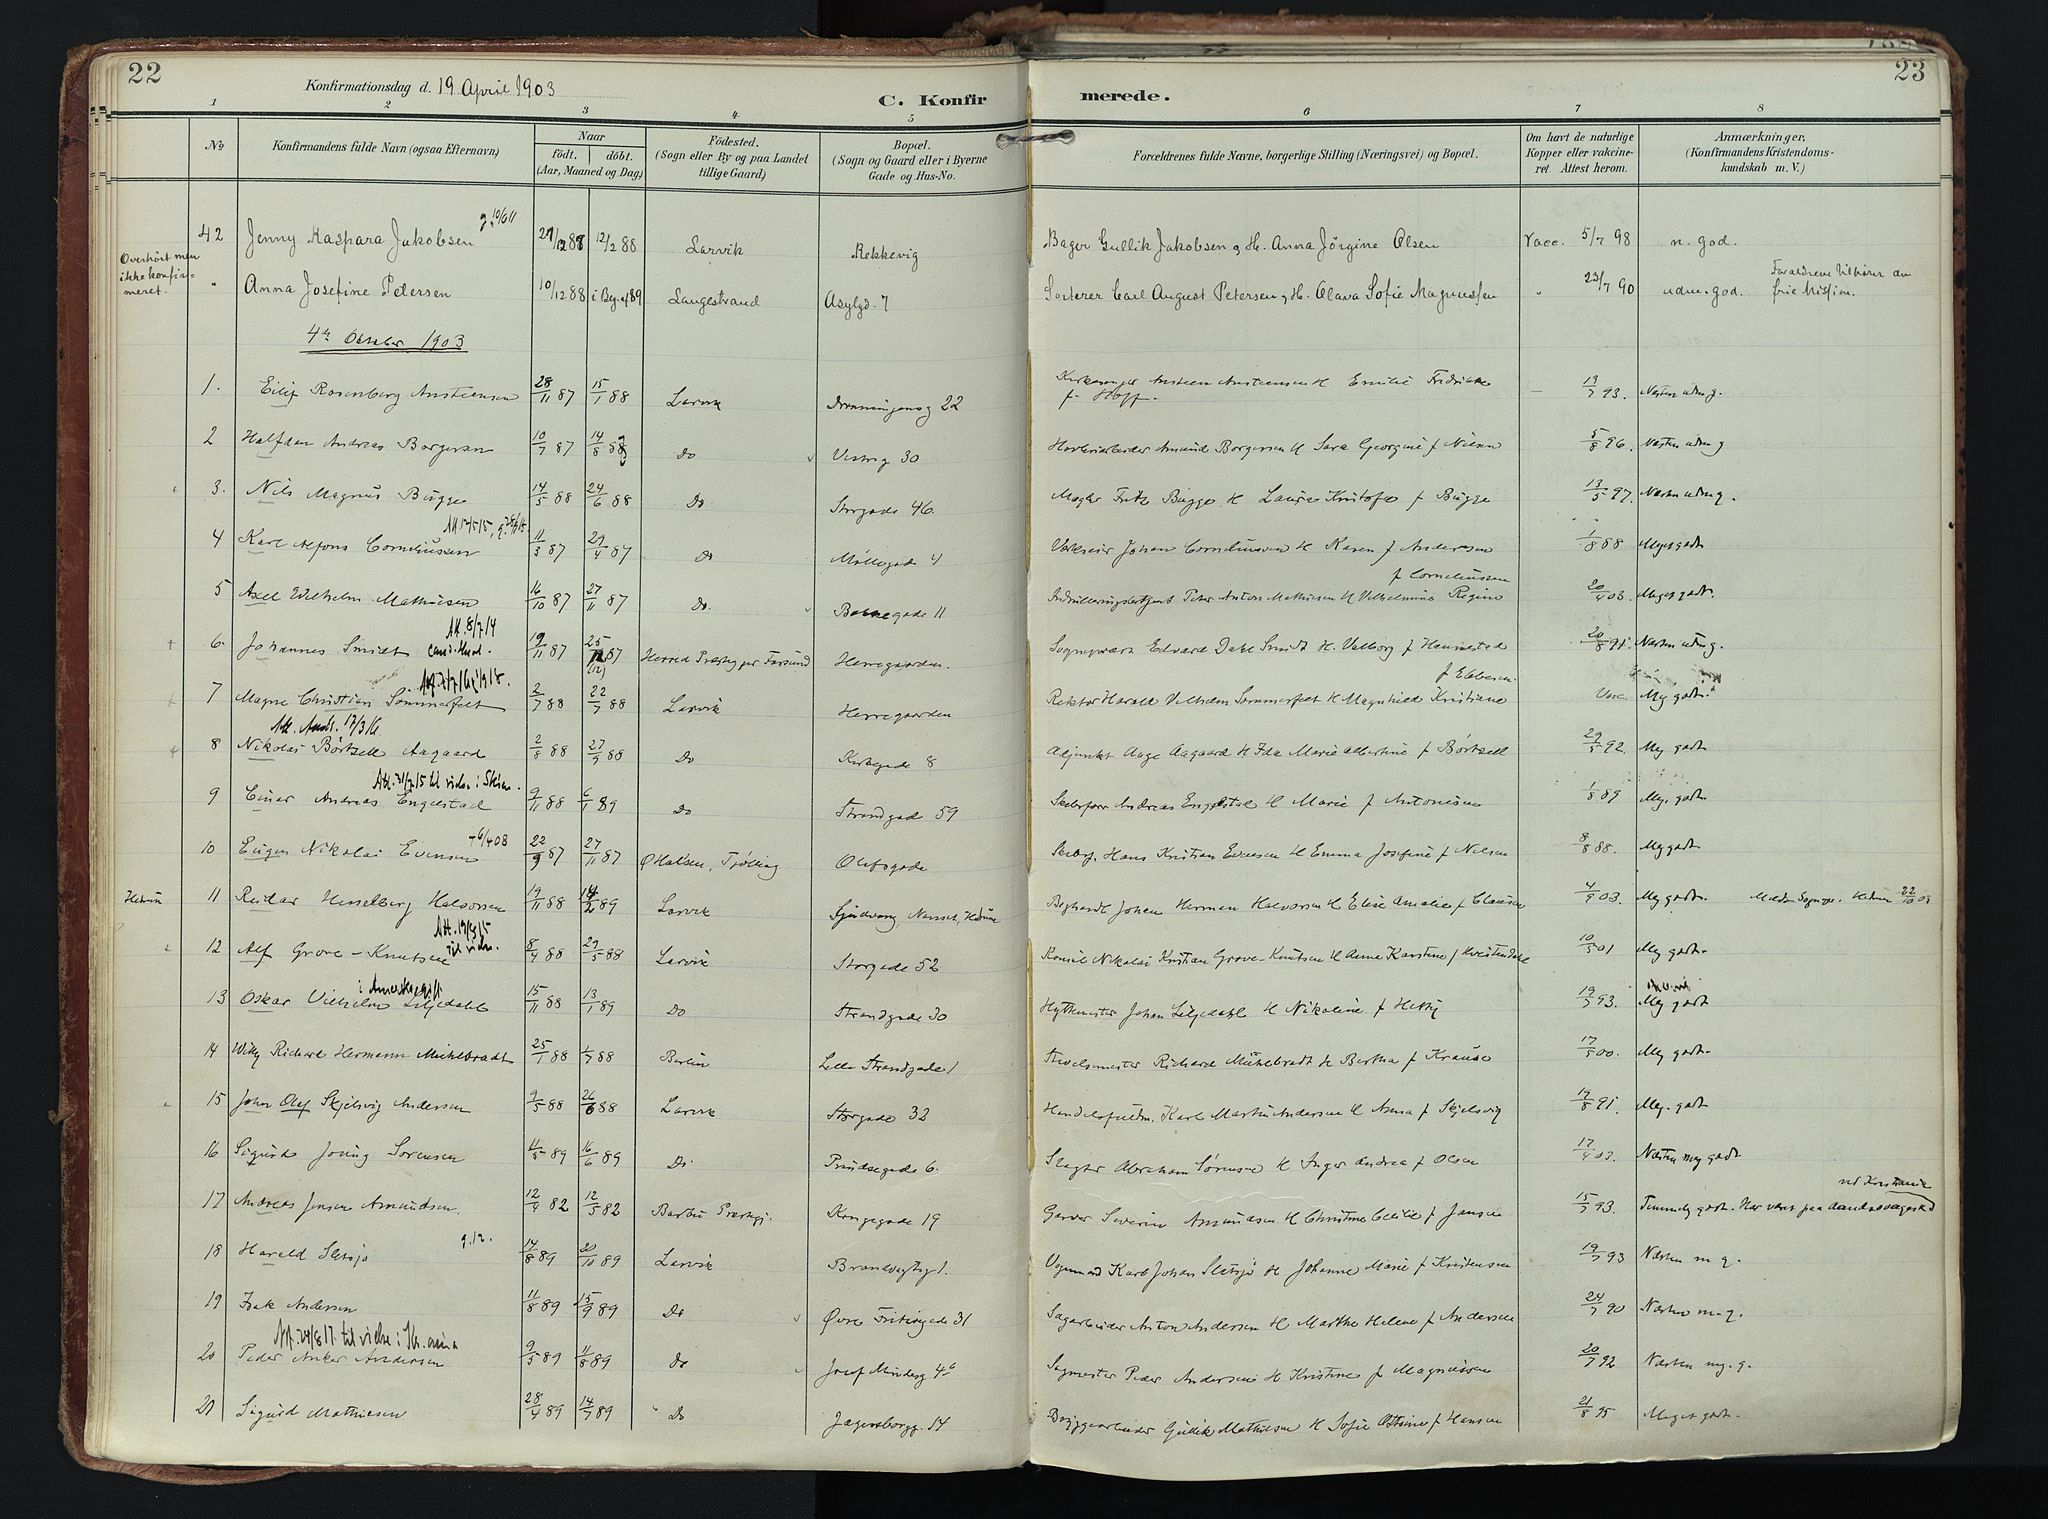 22
Konfirmationsdag d. 19 April 1903
C. Konfirmerede.
23
1 2 3 4 5 6 7 8
No
Konfirmandens fulde Navn (ogsaa Efternavn)
Naar
födt. döbt.
(Aar, Maaned og Dag)
Födested.
(Sogn eller By og paa Landet
tillige Gaard)
Bopæl.
(Sogn og Gaard eller i Byerne
Gade og Hus-No.
Forældrenes fulde Navne, borgerlige Stilling (Næringsvei) og Bopæl.
Om havt de naturlige
Kopper eller vakcine-
ret. Attest herom.
Anmærkninger,
(Konfirmandens Kristendoms-
kundskab m. V.)
42 Jenny Kaspara Jakobsen g. 10/6 11 27/12 87 12/2 88 Larvik Rekkevig Bager Gullik Jakobsen og H. Anna Jörgine Olsen Vacc. 5/7 98 n. god.
Overhört men
ikke konfir-
meret.
" Anna Josefine Petersen 10/12 88 i Beg. af 89 Langestrand Asylgd. 7 Sorterer Carl August Petersen og H. Olava Sofie Magnussen " 23/7 90 udm. god. Forældrene tilhører den
frie Mission.
4de Oktober 1903
1. Eilif Rosenberg Ansteensen 28/11 87 15/1 88 Larvik Dronningensg 22 Kirkesanger Ansteen Ansteensen H Emilie Fredrikke
f. Hoff. — 19/7 93. Næsten udm g.
2 Halfdan Andreas Borgersen 10/7 87 14/8 87 Do Vestreg 30 Amund Borgersen H Sara Georgine f Nilsen 5/8 96. Næsten udm g
3. Nils Magnus Bugge 14/5 88 24/6 88 Do Storgade 46. Mægler Fritz Bugge H Laura Kristofa f Bugge 13/5 97. Næsten udm g.
Att 12/5 15, g.
4 Karl Alfons Corneliussen 11/3 87 29/4 87 Do Möllegade 4 Johan Corneliussen H Karen f Andersen 1/8 88 Meget godt
f Corneliussen
5 Axel Vilhelm Mathiesen 16/10 87 27/11 87 Do. gade 11 Peter Anton Mathiesen H Vilhelmine Regine 20/4 03. Meget godt.
Att. 8/7 14
cand. theol.
6. Johannes Smidt 19/11 87 25/12 87 (12) Herred Præsteg pr Farsund Herregaarden. Sognepræst Edvard Dahl Smidt H Valborg f Hammestad 20/8 91. Næsten udm g.
f Ebbesen.
7 Magne Christian Sömmerfelt 2/7 88 22/7 88 Larvik Herregaarden Rektor Harald Vilhelm Sommerfelt H Magnhild Kristiane Vac. Meg godt.
Att. 17/3 16
8 Nikolai Børtzell Aagaard 2/8 88 27/9 88 Do Kirkegade 8 Adjunkt Aage Aagaard H Ida Marie Albertine f Børtzell 29/5 92. Meg godt
Att. 31/7 15 til vielse i Skien.
9 Einar Andreas Engelstad 9/11 88 6/1 89 Do Strandgade 59 Andreas Engelstad H Marie f Antonisen 1/8 89 Meg. godt.
+ 6/4 08
10 Eugen Nikolai Evensen 22/9 87 27/11 87 Ø Halsen, Tjølling Olafsgade Hans Kristian Evensen H Emma Josefine f Nilsen 8/8 88. Meg godt
Hedrum 11 Reidar Hesselberg Halvorsen 19/11 88 14/2 89 Larvik Nanset, Hedrum Johan Herman Halvorsen H Elise Amalie f Clausen 4/9 03. Meg godt. Meldt Sognepr. Hedrum 22/10 03
Att. 19/9 15
til vielse.
12 Alf Grove-Knutsen 8/4 88 29/5 88 Larvik Storgade 52 Konsul Nikolai Kristian Grove-Knutsen H Anne Karstine f 10/5 01 Meg godt.
i Amerika gift
13 Oskar Vilhelm Liljedahl 15/11 88 13/1 89 Do Strandgade 30 Hyttemester Johan Liljedahl H Nikoline f Hetty 19/7 93. Meg godt
14 Willy Richard Hermann Mühlbradt 25/1 88 1/7 88 Berlin Lille Strandgade 1 Richard Mühlbradt H Bertha f Krause 17/5 00. Meg godt.
15 John Olaf Skjelsvig Andersen 9/5 88 26/6 88 Larvik Storgade 32 Handelsfuldm. Karl Martin Andersen H Anna f Skjelsvig 19/8 91. Meg. godt
16 Sigurd Joung Sørensen 11/5 89 16/6 89 Do Prindsegade 6. Slagter Abraham Sørensen H Inger Andrea f Olsen 17/4 03. Næsten meg godt
17 Andreas Jensen Amundsen. 12/4 82 12/5 82 Barbu Præstegj. Kongegade 19 Garver Severin Amundsen H Christine Cecilie f Jansen 15/5 93. Temmelig godt. Har været paa Aandssvageskol
ved Kristiania
g. 12.
18 Harald Sletsjø 14/8 89 20/10 89 Larvik Brandvagtsg 1. Vognmand Karl Johan Sletsjø H Johanne Marie f Kristensen 19/7 93 Næsten m g.
19 Isak Andersen 11/8 89 15/9 89 Do Øvre Fritzøegade 31 Sagarbeider Anton Andersen H Marthe Helene f Andersen 24/7 90 Næsten m. g.
Att. 24/8 17 til vielse i
20 Peder Anker Andersen 9/5 89 11/8 89 Do Josef Mindesg 4b Sagmester Peder Andersen H Kristine f Magnussen 20/7 92 Næsten mg. g.
21 Sigurd Mathiesen 28/4 89 14/7 89 Do Jægersborgg. 14 Bryggearbeider Gullik Mathiesen H Sofie f Hansen 21/8 95 Meget godt.